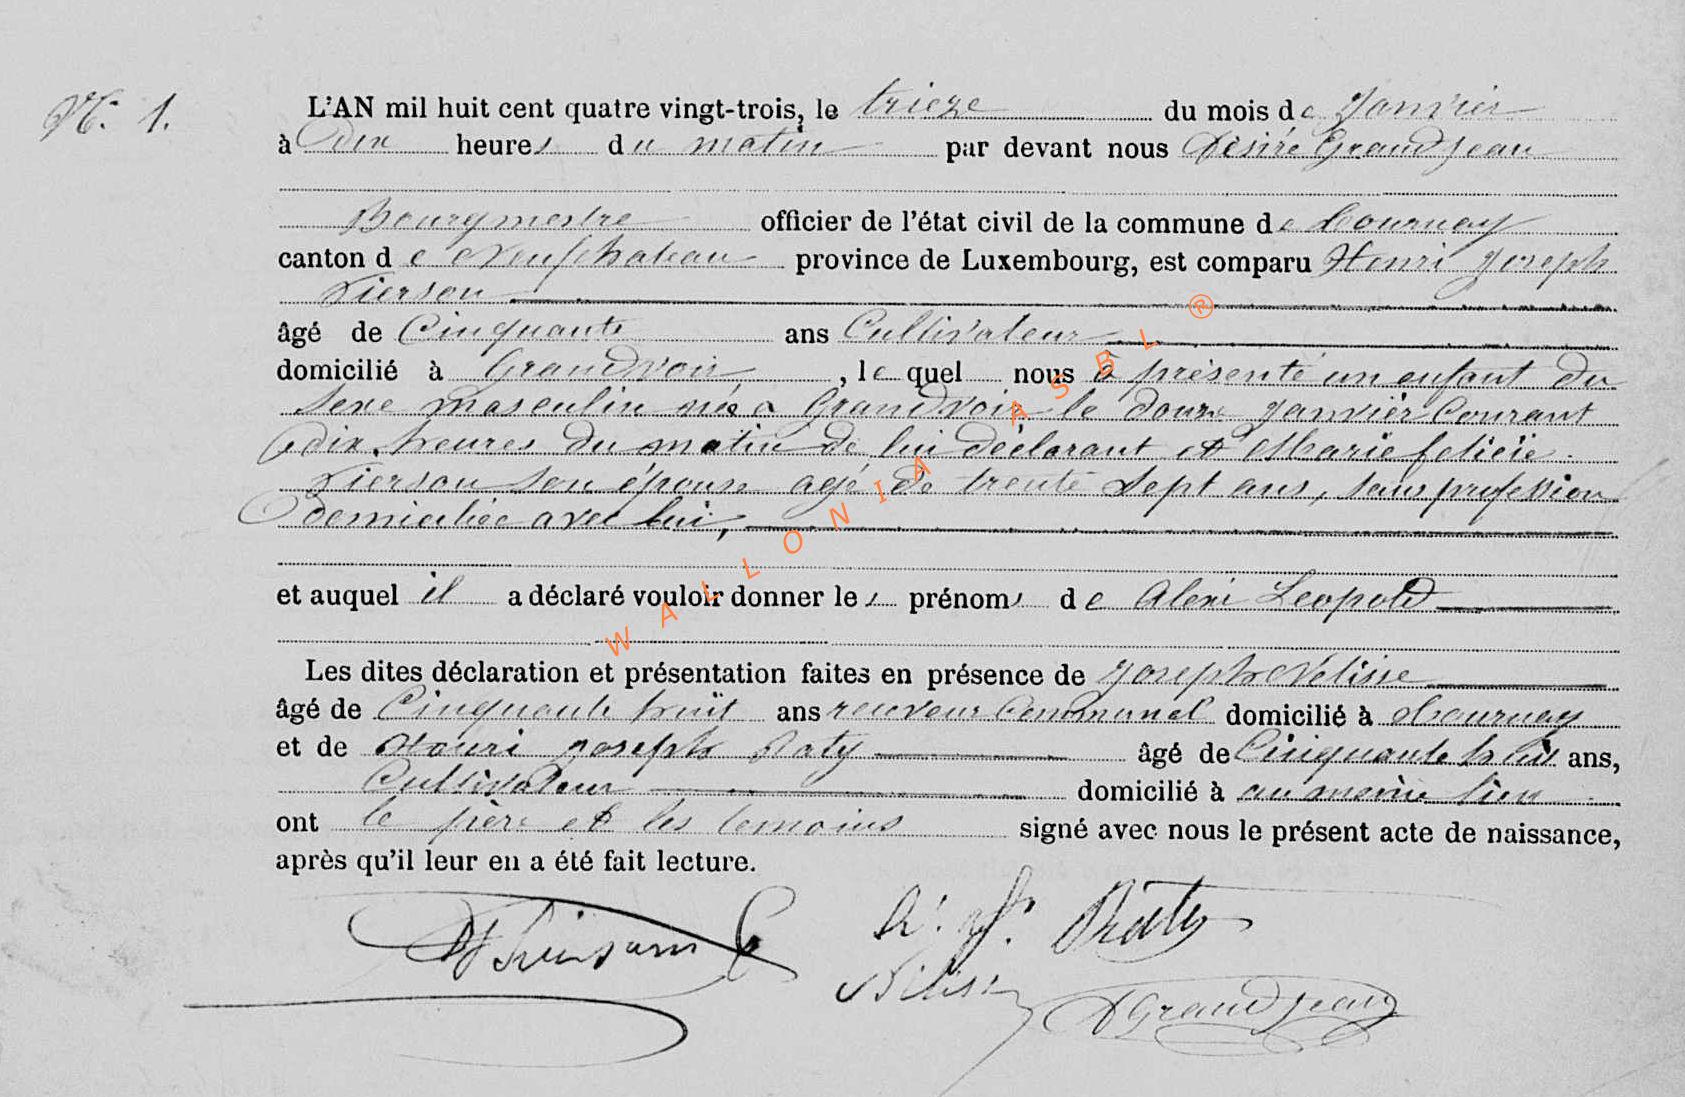 N.° 1.
L'AN mil huit cent quatre vingt-trois, le trieze du mois de Janvier
à dix heures du matin par devant nous Désiré Grandjean
Bourgmestre officier de l'état civil de la commune de Tournay
canton de Neufchateau province de Luxembourg, est comparu Henri Joseph
Pierson
âgé de Cinquante ans Cultivateur
domicilié à Grandvoir, le quel nous à présenté un enfant du
sexe masculin née a Grandvoir le douze Janvier Courant
a dix heures du matin de lui déclarant et Marie felicie
Pierson son épouse agé de trente sept ans, sans profession
domiciliée avec lui,
et auquel il a déclaré vouloir donner les prénoms de Alexi Leopold
Les dites déclaration et présentation faites en présence de Joseph
âgé de Cinquante huit ans receveur Communal domicilié à Tournay
et de Henri Joseph Raty âgé de Cinquante huit ans,
Cultivateur domicilié à au meme lieu
ont le père et les temoins signé avec nous le présent acte de naissance,
après qu'il leur en a été fait lecture.
h. J. Raty
D Grandjean
WALLONIA ASBL ®